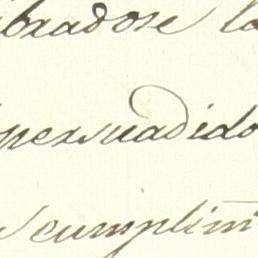 ibradose la
persuadido
cumplim